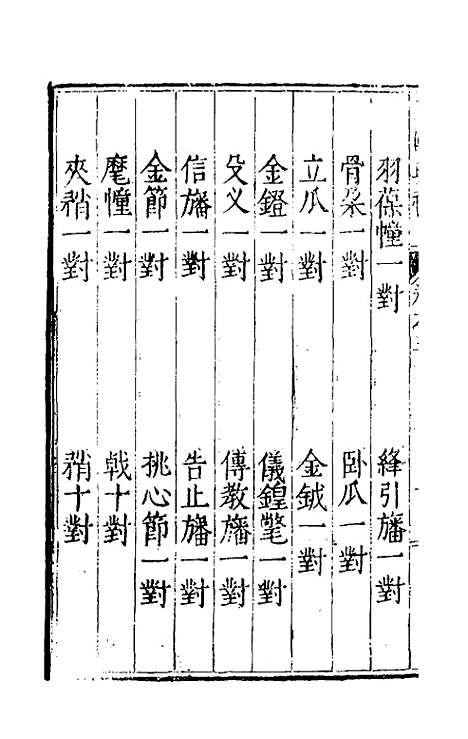 羽葆幢一對 絳引旛一對
骨朶一對 卧瓜一對
立瓜一對 金鉞一對
金鐙一對 儀鍠氅一對
殳义一對 傳教旛一對
信旛一對 告止旛一對
金節一對 挑心節一對
麾幢一對 戟十對
夾矟一對 矟十對